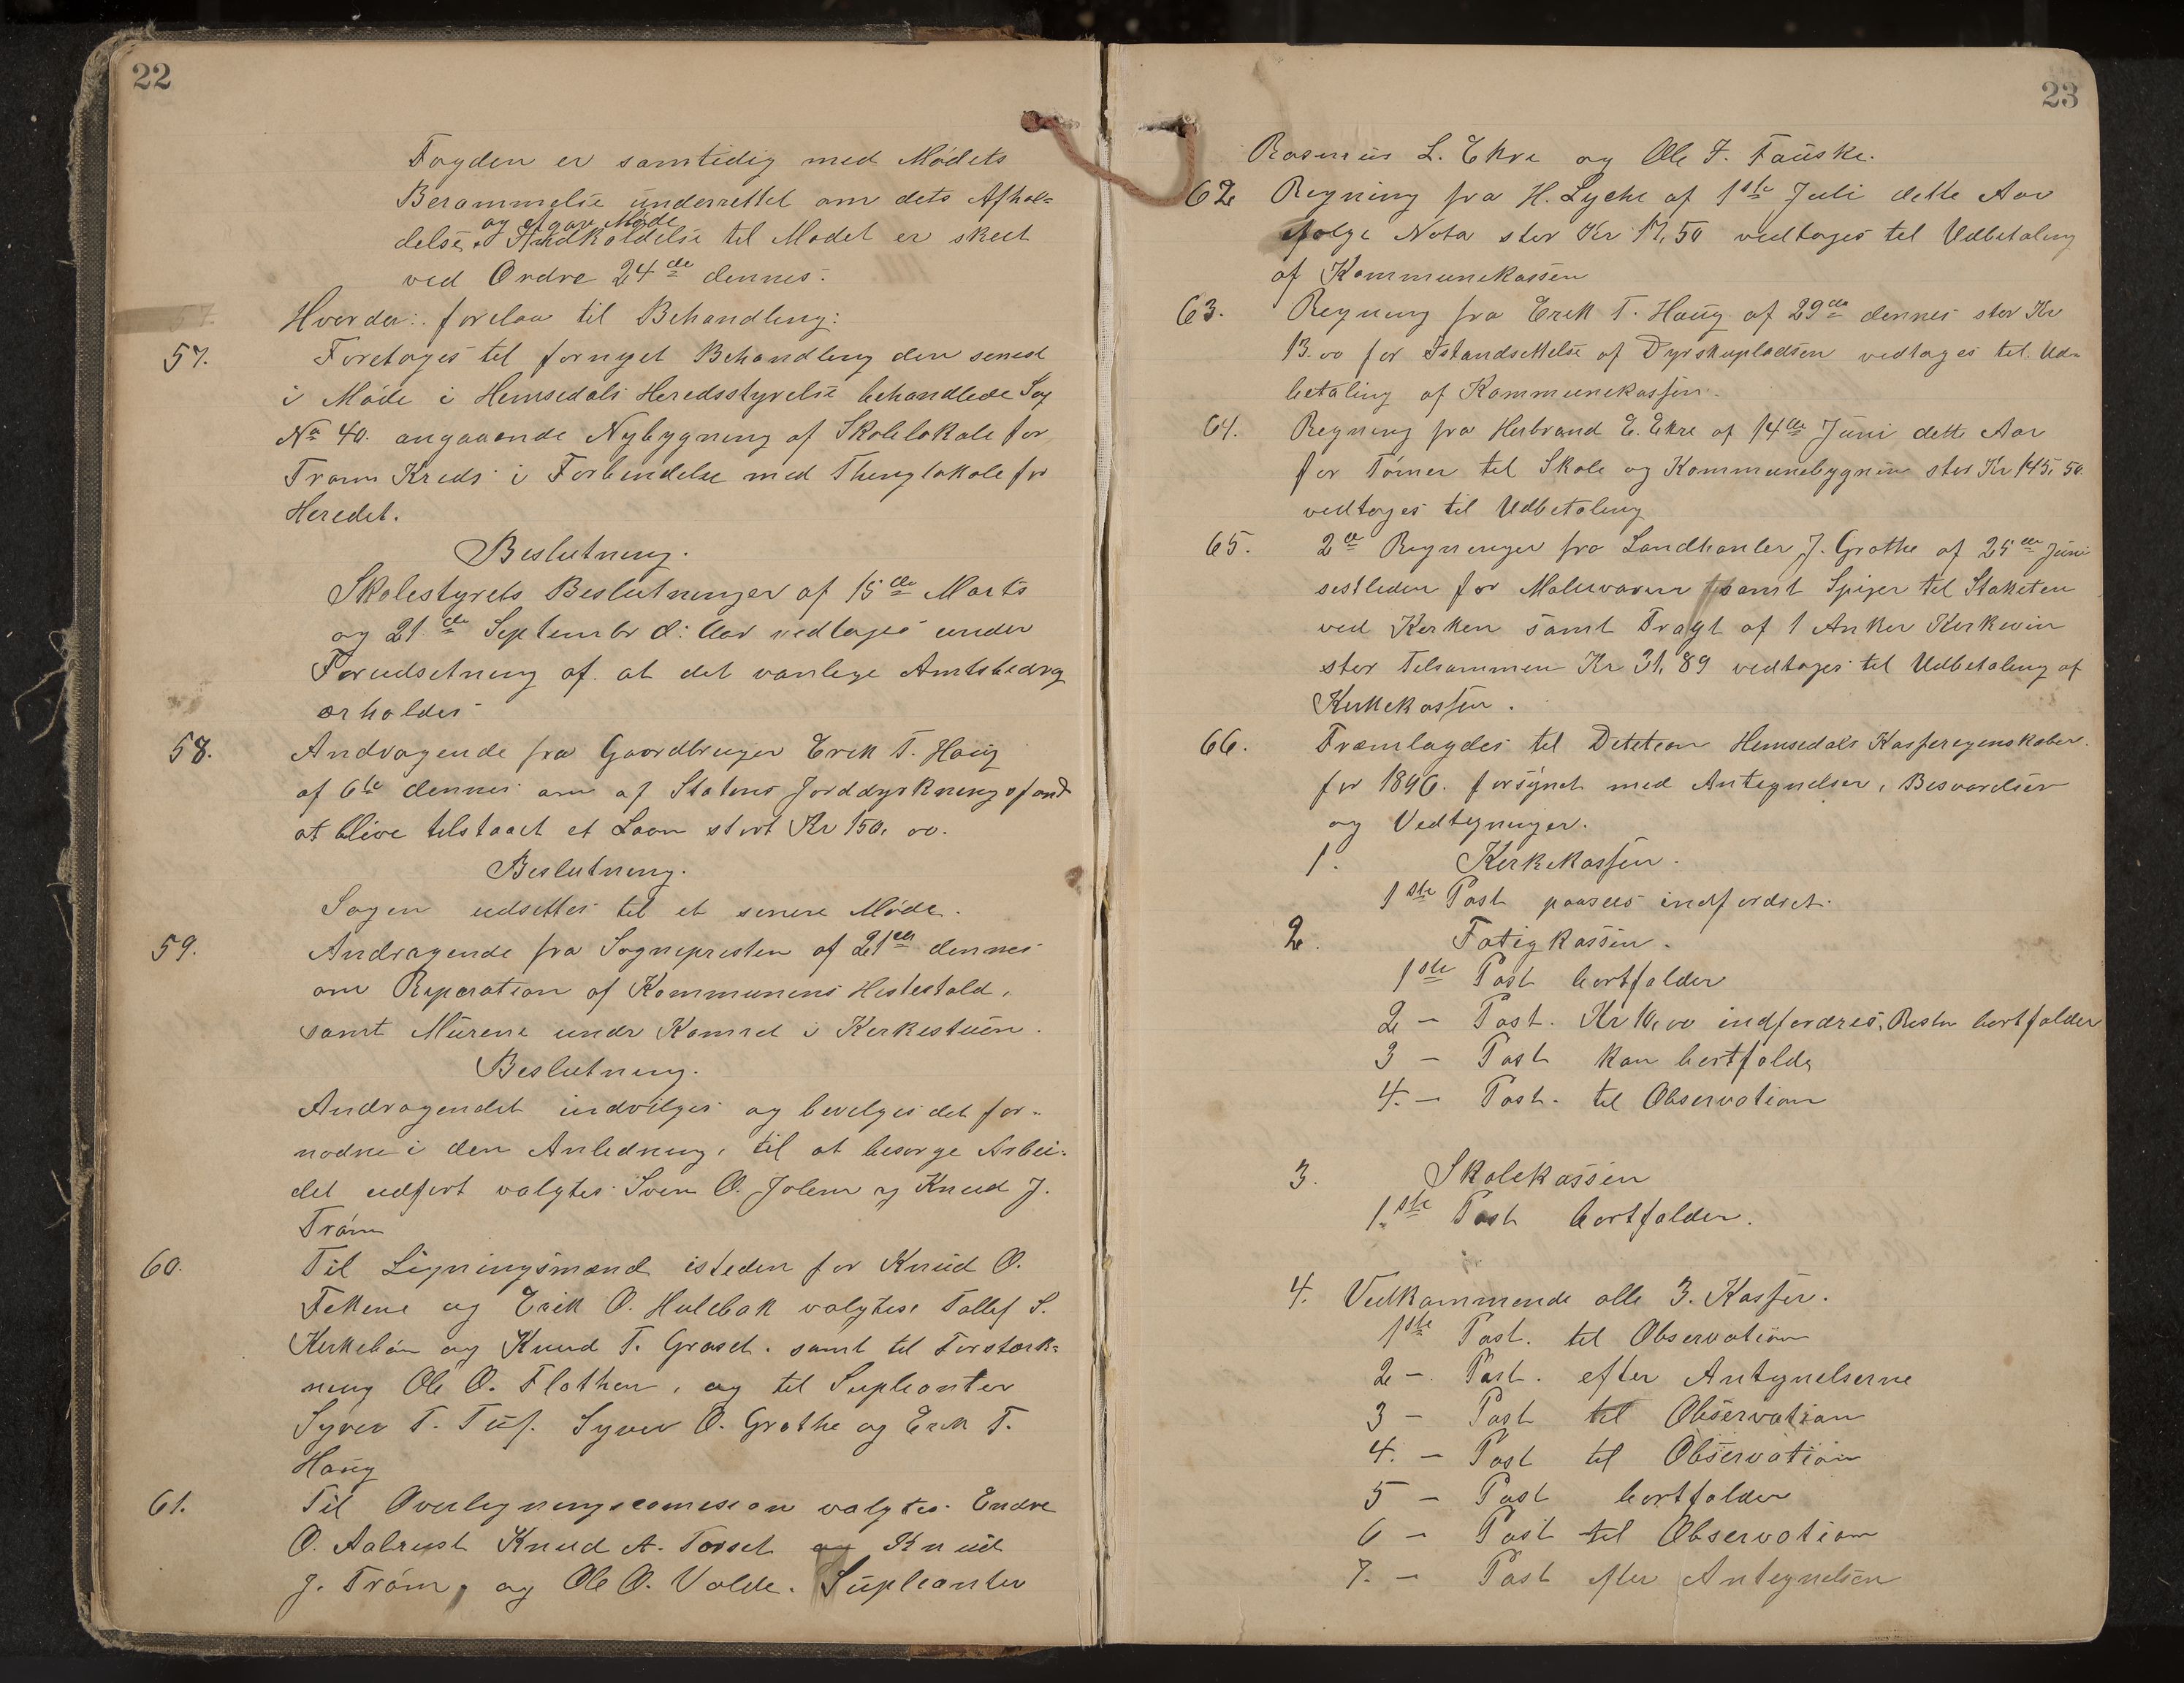 22
Fogden er samtidig med Mødets
Berammelse underrettet om dets Afhol=
og Møde
delse. Indkaldelse til Mødet er skeet
ved Ordre 24de dennes.
Hvorda: forelaa til Behandling:
57. Foretages til fornyet Behandling den senest
i Møde i Hemsedals Heredsstyrelse behandlede Sag
No 40. angaaende Nybygning af Skolelokale for
Trøm Kreds i Forbindelse med Thinglokale for
Heredet.
Beslutning.
Skolestyrets Beslutninger af 15de Marts
og 21de September d: Aar vedtages under
Forudsetning af at det vanlige Amtsbedrag
erholdes
58. Andragende fra Gaardbruger Erik T. Haug
af 6te dennes om af Statens Jorddyrkningsfond
at blive tilstaaet et Laan stort Kr 150, 00.
Beslutning.
Sagen udsettes til et senere Møde.
59. Andragende fra Sognepresten af 21de dennes
om Reparation af Kommunens Hestestald,
samt Murene under Kamret i Kirkestuen.
Beslutning.
Andragendet indvilges og bevilges det for-
nødne i den Anledning, til at besørge Arbei-
det udført valgtes Sven O. Jolem og Knud J.
Trøm
60. Til Ligningsmænd isteden for Knud O.
Fekene og Erik O. Hulebak valgtes Tollef S.
Kirkebøn og Knud T. Graset. samt til Forstærk=
ning Ole O. Flathen, og til Supleanter
Syver T. Tuf. Syver O. Grøthe og Erik T.
Haug
61. Til Overligningscomision valgtes Endre
O. Aalrust Knud A. Torset og Knud
J. Trøm, og Ole O. Volde. Supleanter
23
Rasmus L. Ekre og Ole T. Fauske.
62 Regning fra H. Lyche af 1ste Juli dette Aar
ifølge Nota stor Kr 17,50 vedtages til Udbetaling
af Kommunekassen
63. Regning fra Erik T. Haug af 29de dennes stor Kr
13.00 for Istandsettelse af Dyrskupladsen vedtages til Ud=
betaling af Kommunekassen.
64. Regning fra Herbrand E. Ekre af 14de Juni dette Aar
for Tømer til Skole og Kommunebygnin stor Kr 145, 50.
vedtages til Udbetaling
65. 2de Regninger fra Landhanler J. Grøthe af 25de Juni
sistleden for Malervarer samt Spiger til Staketen
ved Kirken samt Fragt af 1 Anker Kirkevin
stor tilsammen Kr 31,89 vedtages til Udbetaling af
Kirkekassen.
66. Fremlagdes til Hemsedals Kasseregnskaber
for 1896. forsynet med Antegnelser, Besvarelser
og Vedtegninger.
1. Kirkekassen.
1ste Post paasees indfordret.
2. Fatigkassen.
1ste Post bortfalder
2 — Post. Kr 10,00 indfordres, Resten bortfalder
3 — Post kan bortfalde
4. — Post. til Observation
3. Skolekassen
1.ste Post bortfalder.
4. Vedkommende alle 3. Kasser.
1ste Post. til Observation
2 —. Post. efter Antegnelserne
3 — Post til Observation
4. — Post til Observation
5 — Post bortfalder
6 — Post til Observation
7. — Post efter Antegnelsen